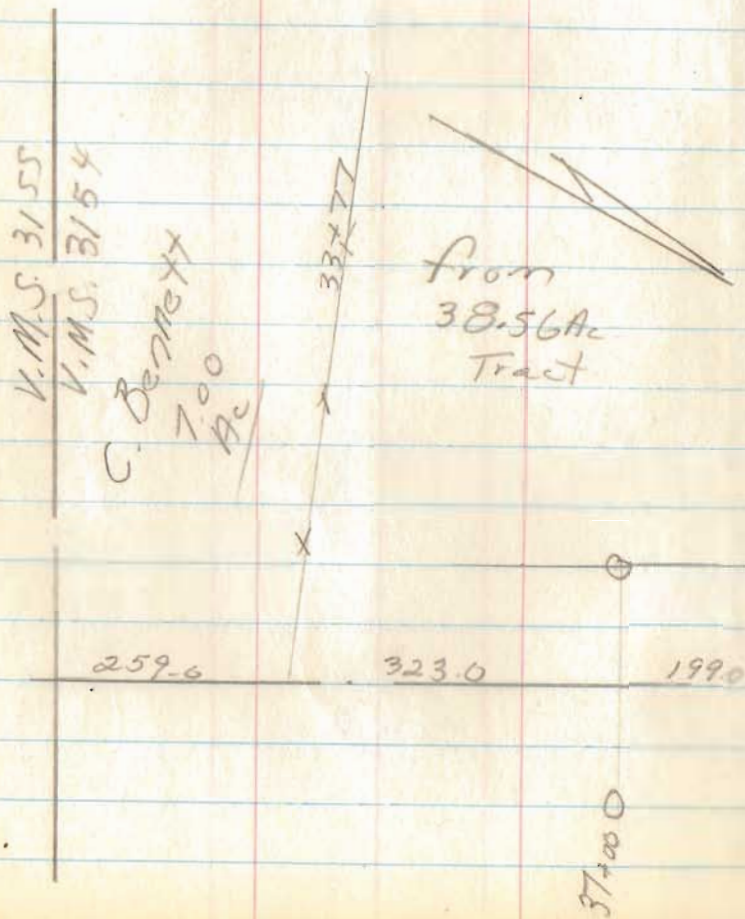 V.M.S. 3155
V.M.S. 3154
C. Bennett
7.00
Ac
33+77
from
38.56 Ac
Tract
259.6
323.0
199.0
37+00